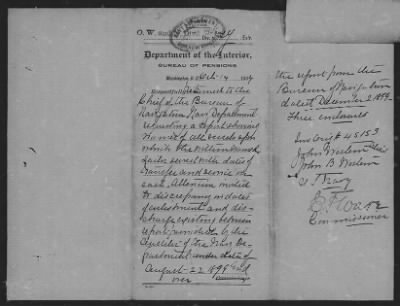 O. W.
Department of the Interior,
BUREAU OF PENSIONS
Washington, D.C., Oct. 14, 189
Respectfully returned to the
Chief of the Bureau of
Navigation Navy Department
requesting a report showing
names of all vessels upon
which the
sailor served with dates of
transfer and service on
each. Attention invited
to discrepancy in dates
of enlistment and dis-
charge existing between
report furnished by the
Auditor of the Navy De-
partment under date of
August 22 1898 and
over
the report from the
Bureau of Navigation
dated December 2 189
Three enclosures
45153
John
John B
U S Navy
Commissioner